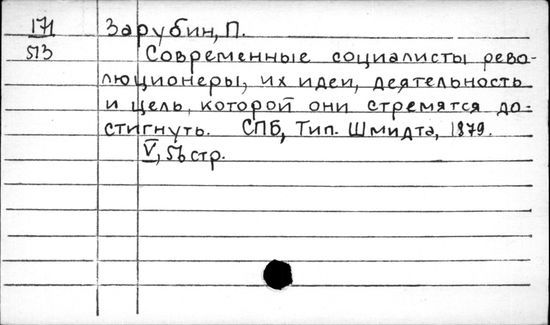 171
513
Зарубин, П.
Современные социалисты рево-
люционеры, их идеи, деятельность
и цель, которой они стремятся до-
стигнуть. СПБ, Тип. Шмидта, 1879.
V, 56 стр.